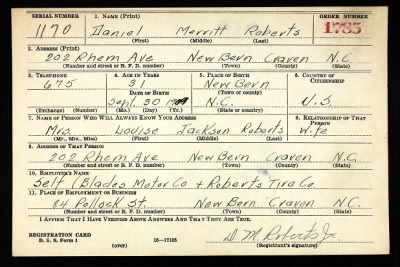 SERIAL NUMBER 1. NAME (Print) ORDER NUMBER
1170 Daniel Merritt Roberts 1785
(First) (Middle) (Last)
2. ADDRESS (Print)
202 Rhem Ave New Bern Craven N.C.
(Number and street or R. F. D. number) (Town) (County) (State)
3. TELEPHONE 4. AGE IN YEARS 5. PLACE OF BIRTH 6. COUNTRY OF CITIZENSHIP
675 31 New Bern
DATE OF BIRTH (Town or county)
Sept. 30 1909 N.C. U.S.
(Exchange) (Number) (Mo.) (Day) (Yr.) (State or country)
7. NAME OF PERSON WHO WILL ALWAYS KNOW YOUR ADDRESS 8. RELATIONSHIP OF THAT PERSON
Mrs. Louise Jackson Roberts Wife
(Mr., Mrs., Miss) (First) (Middle) (Last)
9. ADDRESS OF THAT PERSON
202 Rhem Ave New Bern Craven N.C.
(Number and street or R. F. D. number) (Town) (County) (State)
10. EMPLOYER'S NAME
Self (Blades Motor Co + Roberts Tire Co.
11. PLACE OF EMPLOYMENT OR BUSINESS
84 Pollock St. New Bern Craven N.C.
(Number and street or R. F. D. number) (Town) (County) (State)
I AFFIRM THAT I HAVE VERIFIED ABOVE ANSWERS AND THAT THEY ARE TRUE.
D. M. Roberts Jr.
REGISTRATION CARD
D. S. S. Form 1 (over) 16—17105 (Registrant's signature)